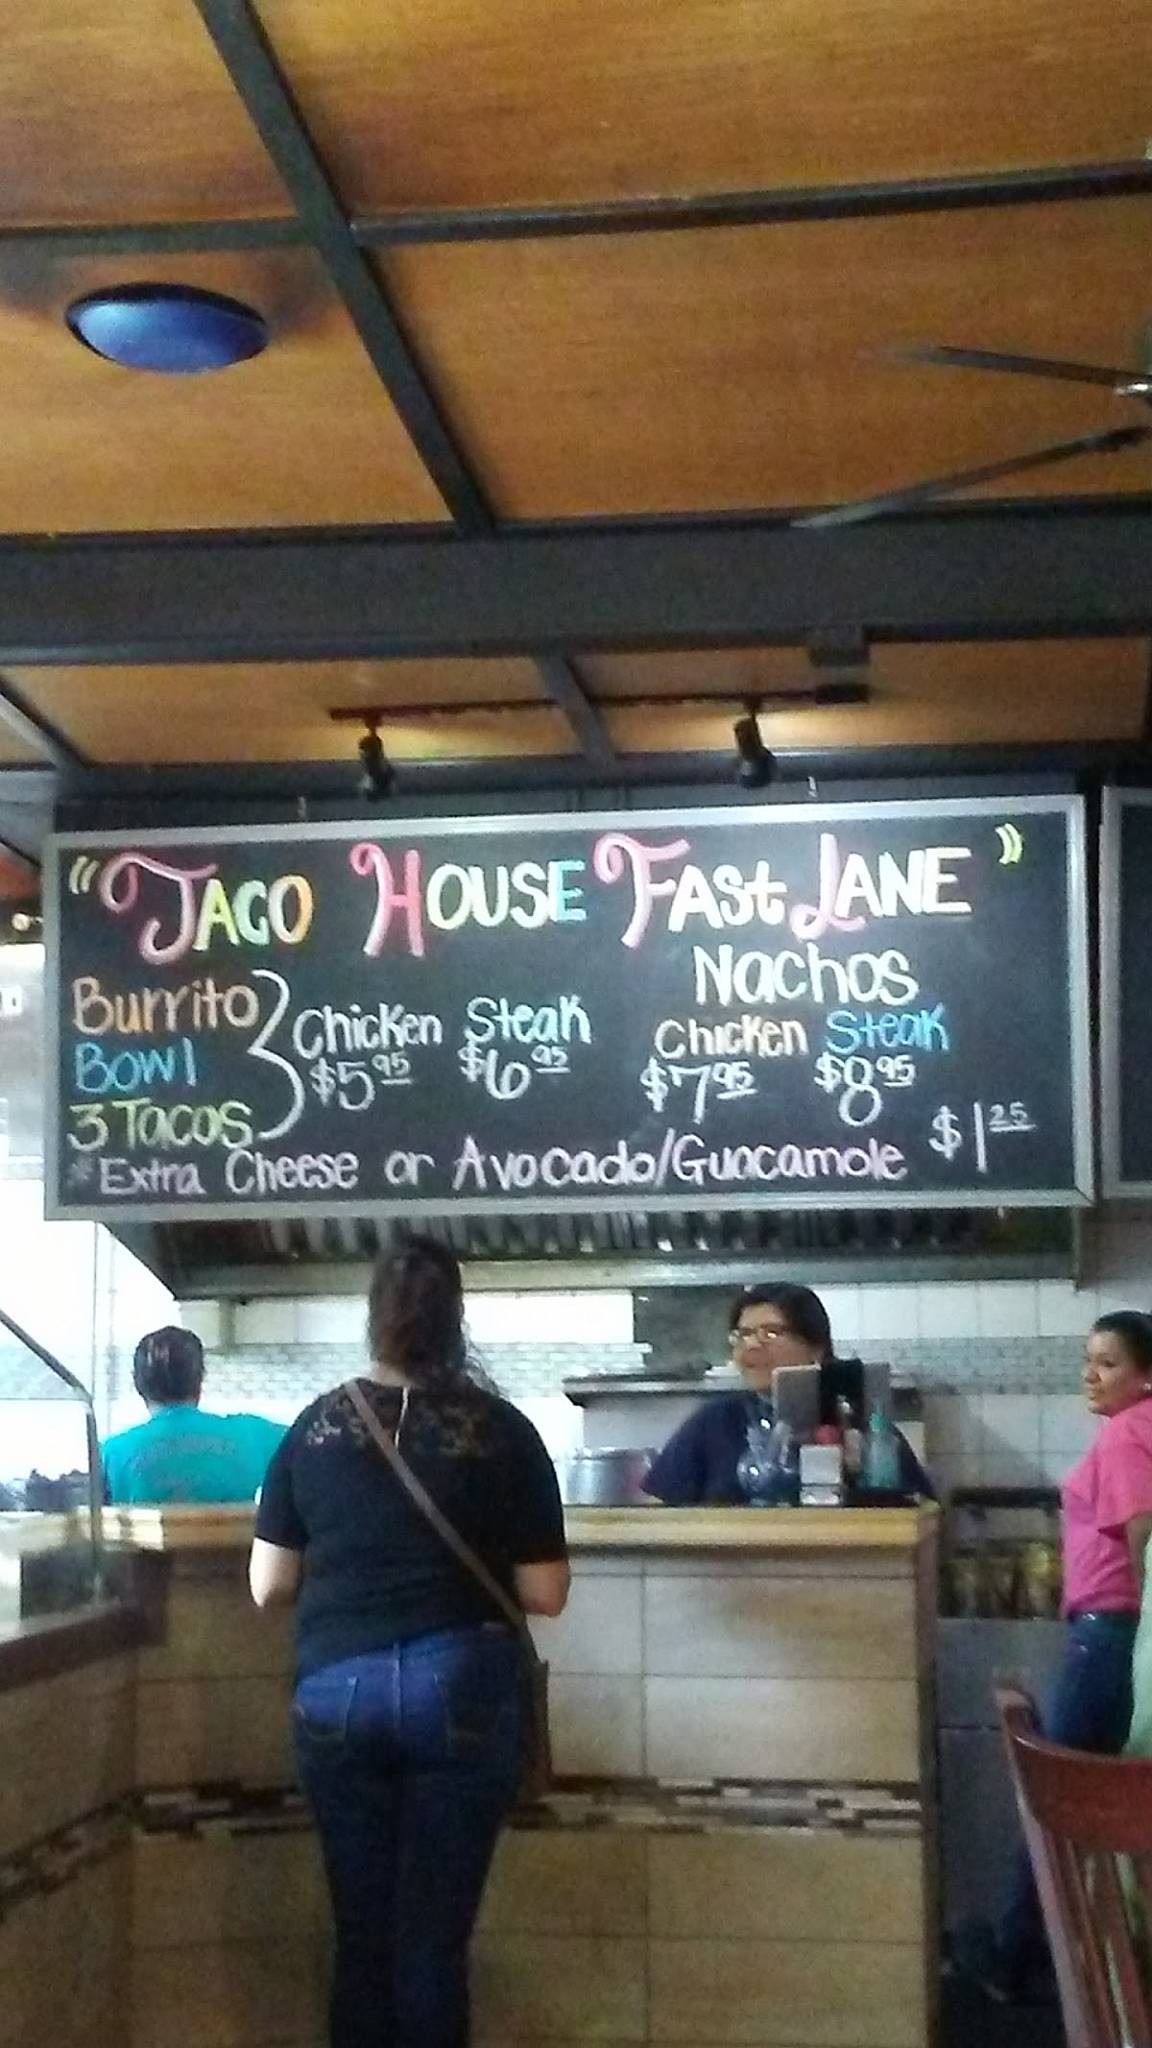 "TACO HOUSE FASt LANE"
Burrito
Bowl
3 Tacos
Chicken Steak
$5.95 $6.95
Nachos
Chicken Steak
$7.95 $8.95
*Extra Cheese or Avocado/Guacamole $1.25